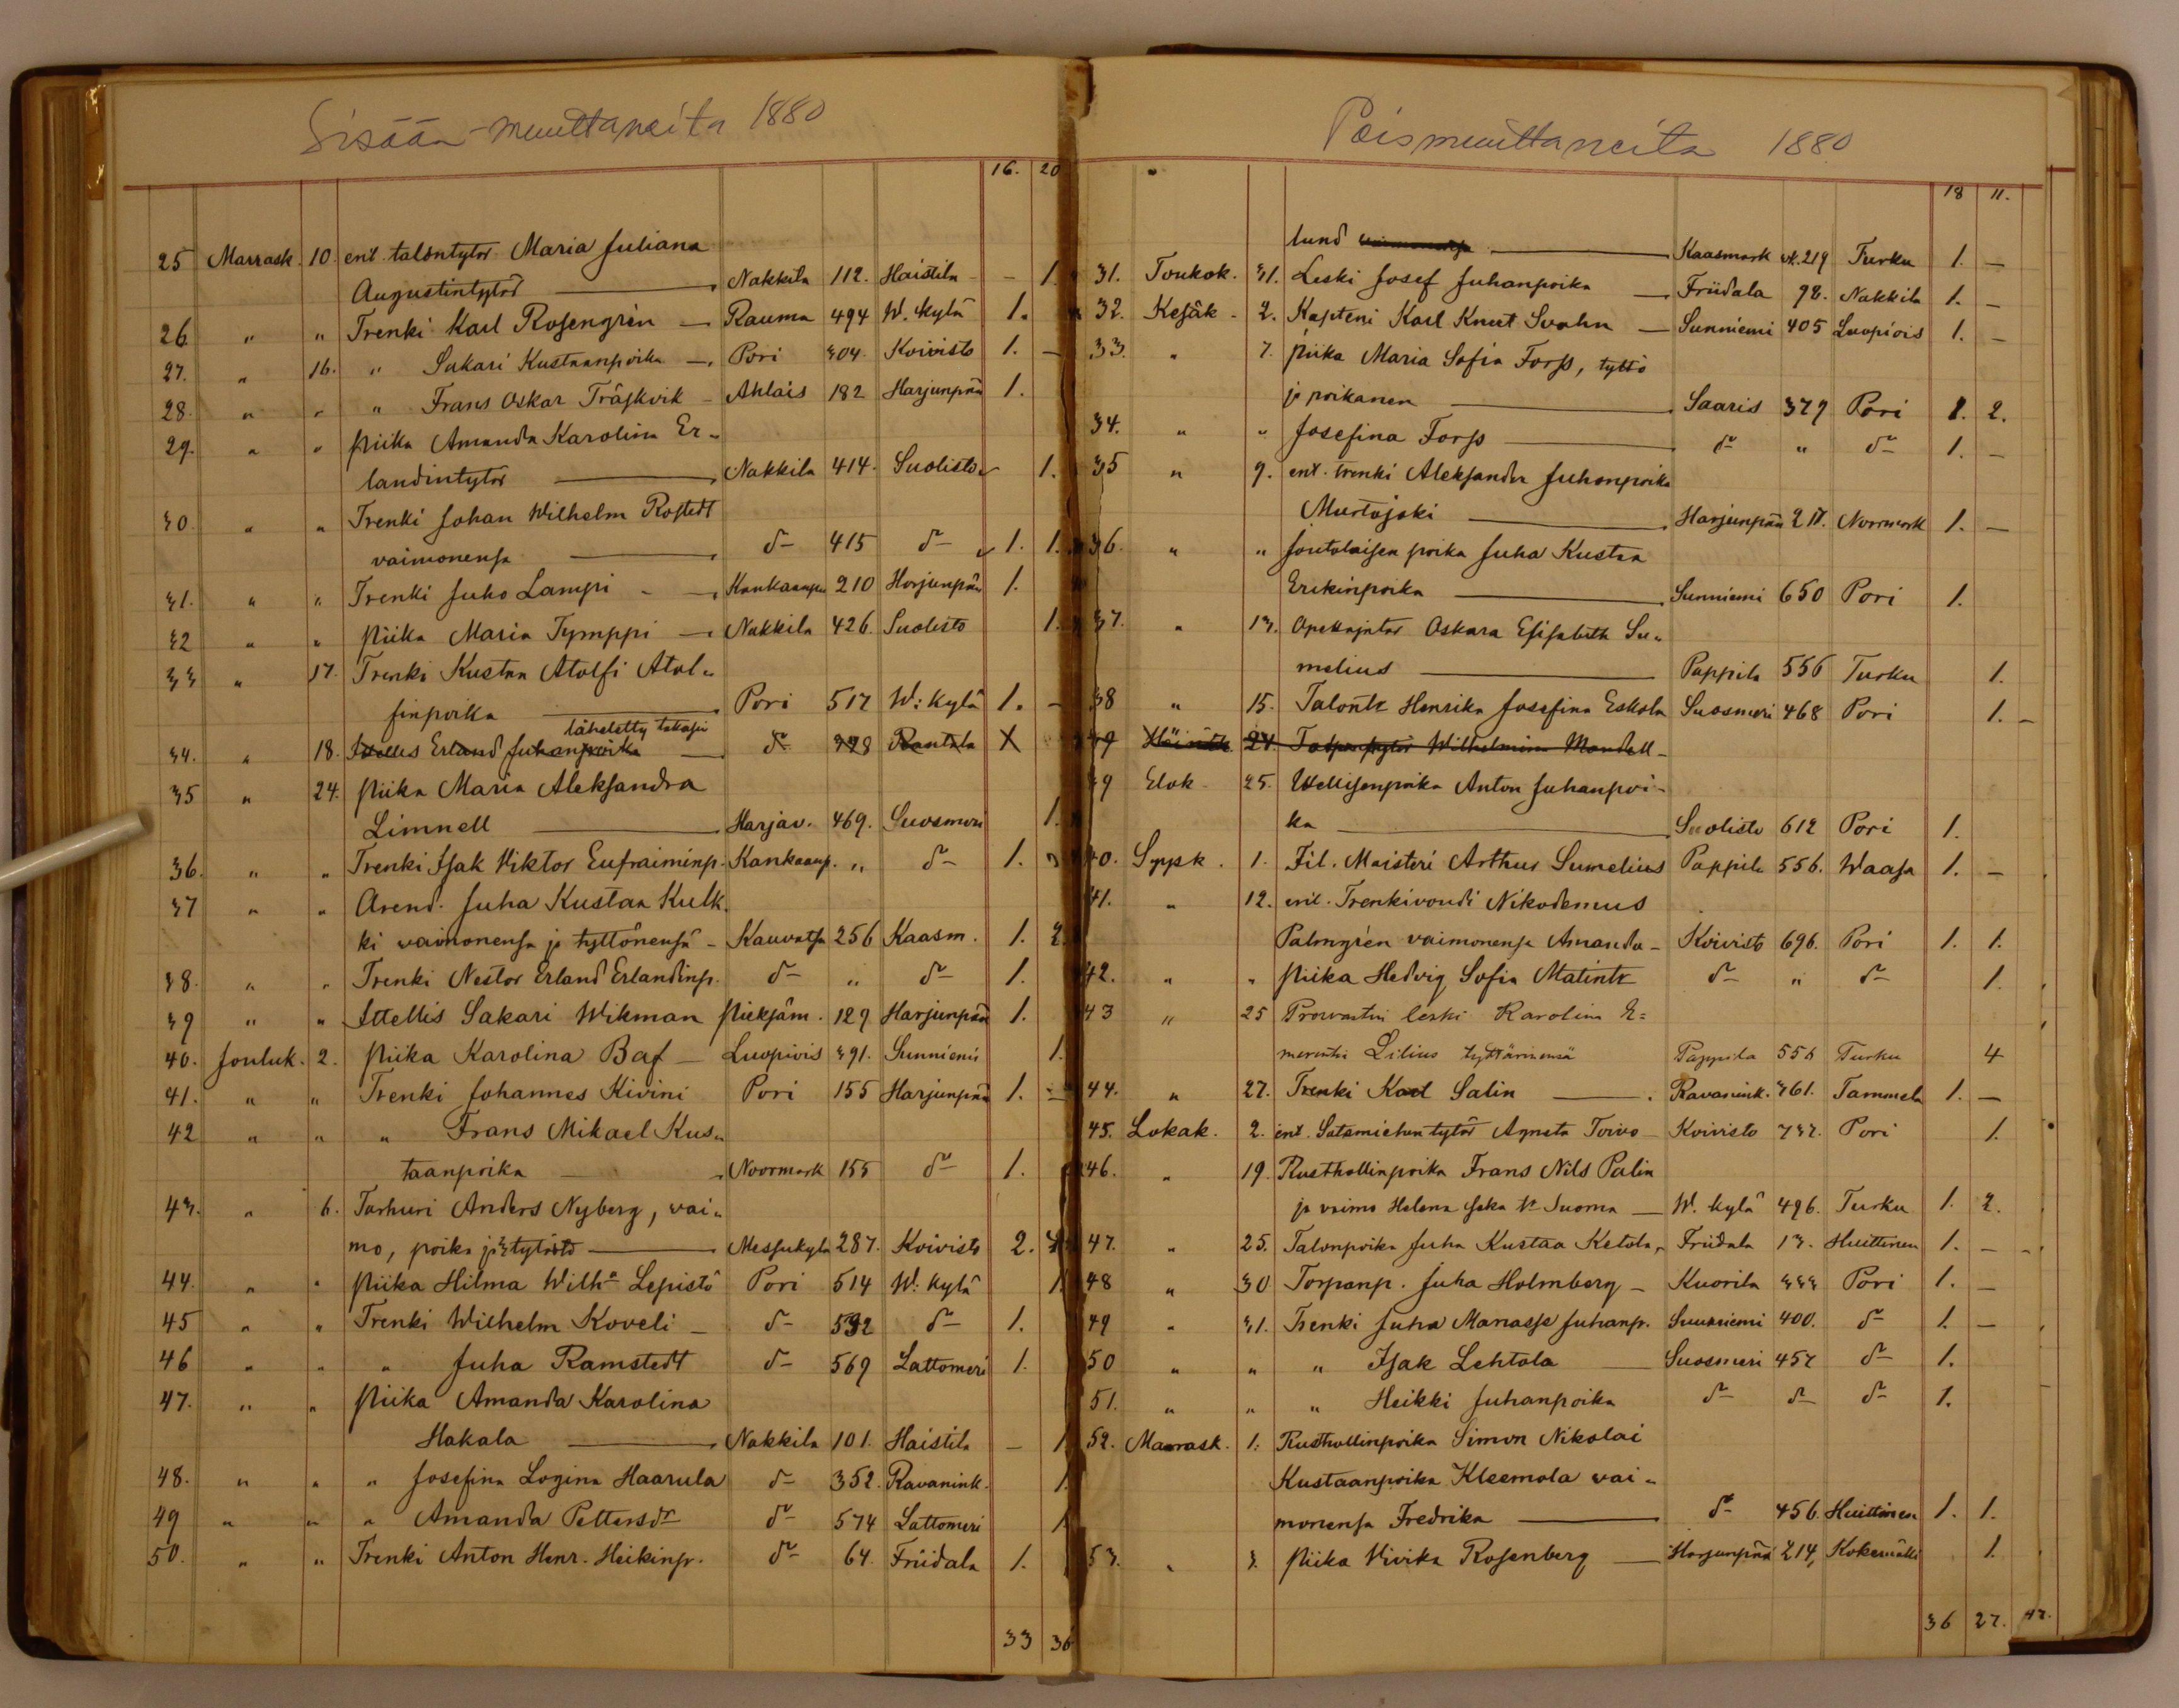 Sisään-muuttaneita 1880
16. 20
25 Marrask. 10. ent. talontytör Maria Juliana
Augustintytör — Nakkila 112. Haistila - 1.
26 " " Trenki Karl Rosengrén — Rauma 494 W. kylä 1.
27. " 16. " Sakari Kustaanpoika —. Pori 304. Koivisto 1. —
28. " " " Frans Oskar Träskvik - Ahlais 182 Harjunpää 1.
29. " " Piika Amanda Karolina Er-
landintytör — Nakkila 414. Suolisto 1.
30. " " Trenki Johan Wilhelm Rostedt
vaimonensa — d:o 415 d:o 1. 1.
31. " " Trenki Juho Lampi - Kankaanpää 210 Harjunpää 1.
32 " " Piika Maria Tymppi — Nakkila 426. Suolisto 1.
33 " 17. Trenki Kustaa Atolfi Atol-
finpoika — Pori 517 W: kylä 1. -
lähetetty takasin
34. " 18. Itsellis Erland Juhanpoika — d:o 398 Rantala X
35 " 24. Piika Maria Aleksandra
Limnell — Harjav. 469. Suosmeri 1.
36. " " Trenki Isak Viktor Eufraiminp. Kankaanp. " d:o 1.
37 " " Arend. Juha Kustaa Kulk-
ki vaimonensa ja tyttönensä - Kauvatsa 256 Kaasm. 1. 2.
38. " " Trenki Nestor Erland Erlandinp. d:o " d:o 1.
39 " " Ittellis Sakari Wikman Piekjäm. 129 Harjunpää 1.
40. Jouluk. 2. Piika Karolina Baf — Luvpiois 391. Sunniemi 1.
41. " " Trenki Johannes Kivini Pori 155 Harjunpää 1. -
42 " " " Frans Mikael Kus-
taanpoika — Noormark 155 d:o 1.
43. " 6. Torhuri Anders Nyberg, vai-
mo, poika ja 3 tytärtä — Messukylä 287. Koivisto 2. 4.
44. " " Piika Hilma Wilh:a Lepistö Pori 514 W: kylä 1.
45 " " Trenki Wilhelm Koveli — d:o 592 d:o 1.
46 " " " Juha Ramstedt d:o 569 Lattomeri 1.
47. " " Piika Amanda Karolina
Hakala — Nakkila 101. Haistila - 1.
48. " " " Josefina Logina Haarula d:o 352. Ravanink. 1.
49 " " " Amanda Pettersdr d:o 574 Lattomeri 1.
50. " " Trenki Anton Henr. Heikinp. d:o 64. Friidala 1.
33 36
Poismuuttaneita 1880
18 11.
lund vaimonensa — Kaasmark vk. 219 Turku 1. —
31. Toukok. 31. Leski Josef Juhanpoika — Friidala 98. Nakkila 1. —
32. Kesäk - 2. Kapteni Karl Knut Svahn — Sunniemi 405 Luvpiois 1. —
33. " 7. Piika Maria Sofia Forss, tyttö
ja poikanen — Saaris 379 Pori 1. 2.
34. " " Josefina Forss — d:o " d:o 1. —
35 " 9. ent. trenki Aleksander Juhanpoika
Murtojoki — Harjunpää 217. Norrmark 1. —
36. " " Joutolaisen poika Juha Kustaa
Erikinpoika — Sunniemi 650 Pori 1.
37. " 13. Opettajatar Oskara Elisabeth Su-
melius — Pappila 556 Turku 1.
38 " 15. Talontr Henrika Josefina Eskola Suosmeri 468 Pori 1. -
39 Heinäk 24. Torpantytör Wilhelmina Mandell -
39 Elok 25. Itsellisenpoika Anton Juhanpoi-
ka — Suolisto 612 Pori 1.
40. Syysk. 1. Fil. Maisteri Arthur Sumelius Pappila 556. Waasa 1. —
41. " 12. ent. Trenkivouti Nikodemus
Palmgrén vaimonensa Amanda - Koivisto 696. Pori 1. 1.
42. " " Piika Hedvig Sofia Matintr d:o " d:o 1.
43 " 25 Provastin leski Karolina E=
merentia Lilius tyttärinensä Pappila 556 Turku 4
44. " 27. Trenki Karl Salin — Ravanink. 361. Tammela 1. —
45. Lokak. 2. ent. Satamiehentytär Agneta Toivo - Koivisto 737. Pori 1.
46. " 19. Rusthollinpoika Frans Nils Palin
ja vaimo Helena Isaka tr Suoma — W. kylä 496. Turku 1. 2.
47. " 25. Talonpoika Juha Kustaa Ketola, Friidala 13. Huittinen 1. —
48 " 30 Torpanp. Juha Holmberg — Kuorila 333 Pori 1. —
49 " 31. Trenki Juha Manasse Juhanp. Sunniemi 400. d:o 1. —
50 " " " Isak Lehtola — Suosmeri 457 d:o 1.
51. " " " Heikki Juhanpoika d:o d:o d:o 1.
52. Marrask. 1. Rusthollinpoika Simon Nikolai
Kustaanpoika Kleemola vai-
monensa Fredrika — d:o 456. Huittinen 1. 1.
53. " 3. Piika Vivika Rosenberg — Harjunpää 214, Kokemäki 1.
36 27. 47.